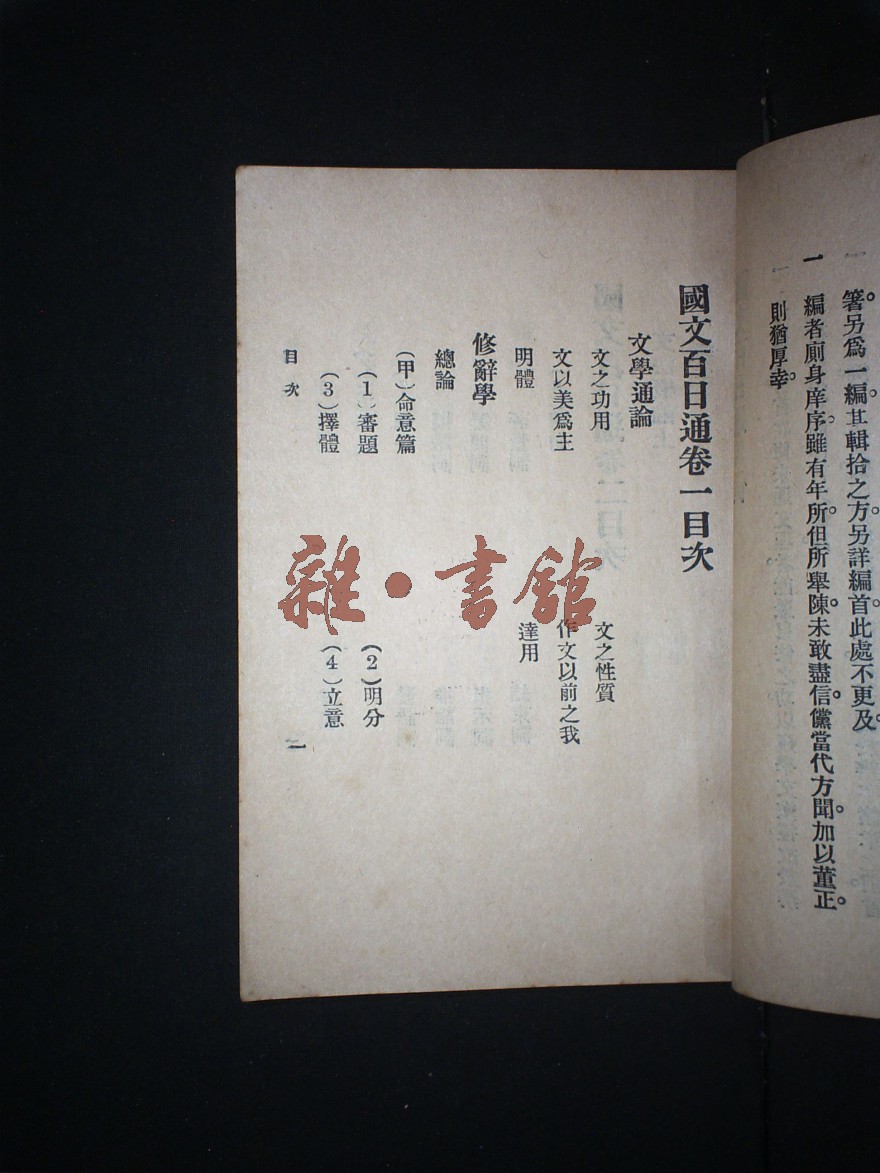 箸另爲一編。其輯拾之方。另詳編首。此處不更及。
一 編者廁身庠序。雖有年所。但所舉陳。未敢盡信。儻當代方聞。加以董正。
則猶厚幸。
國文百日通卷一目次
文學通論
文之功用 文之性質
文以美爲主 作文以前之我
明體 達用
修辭學
總論
(甲)命意篇
(1)審題 (2)明分
(3)擇體 (4)立意
目次 二
雜·書館